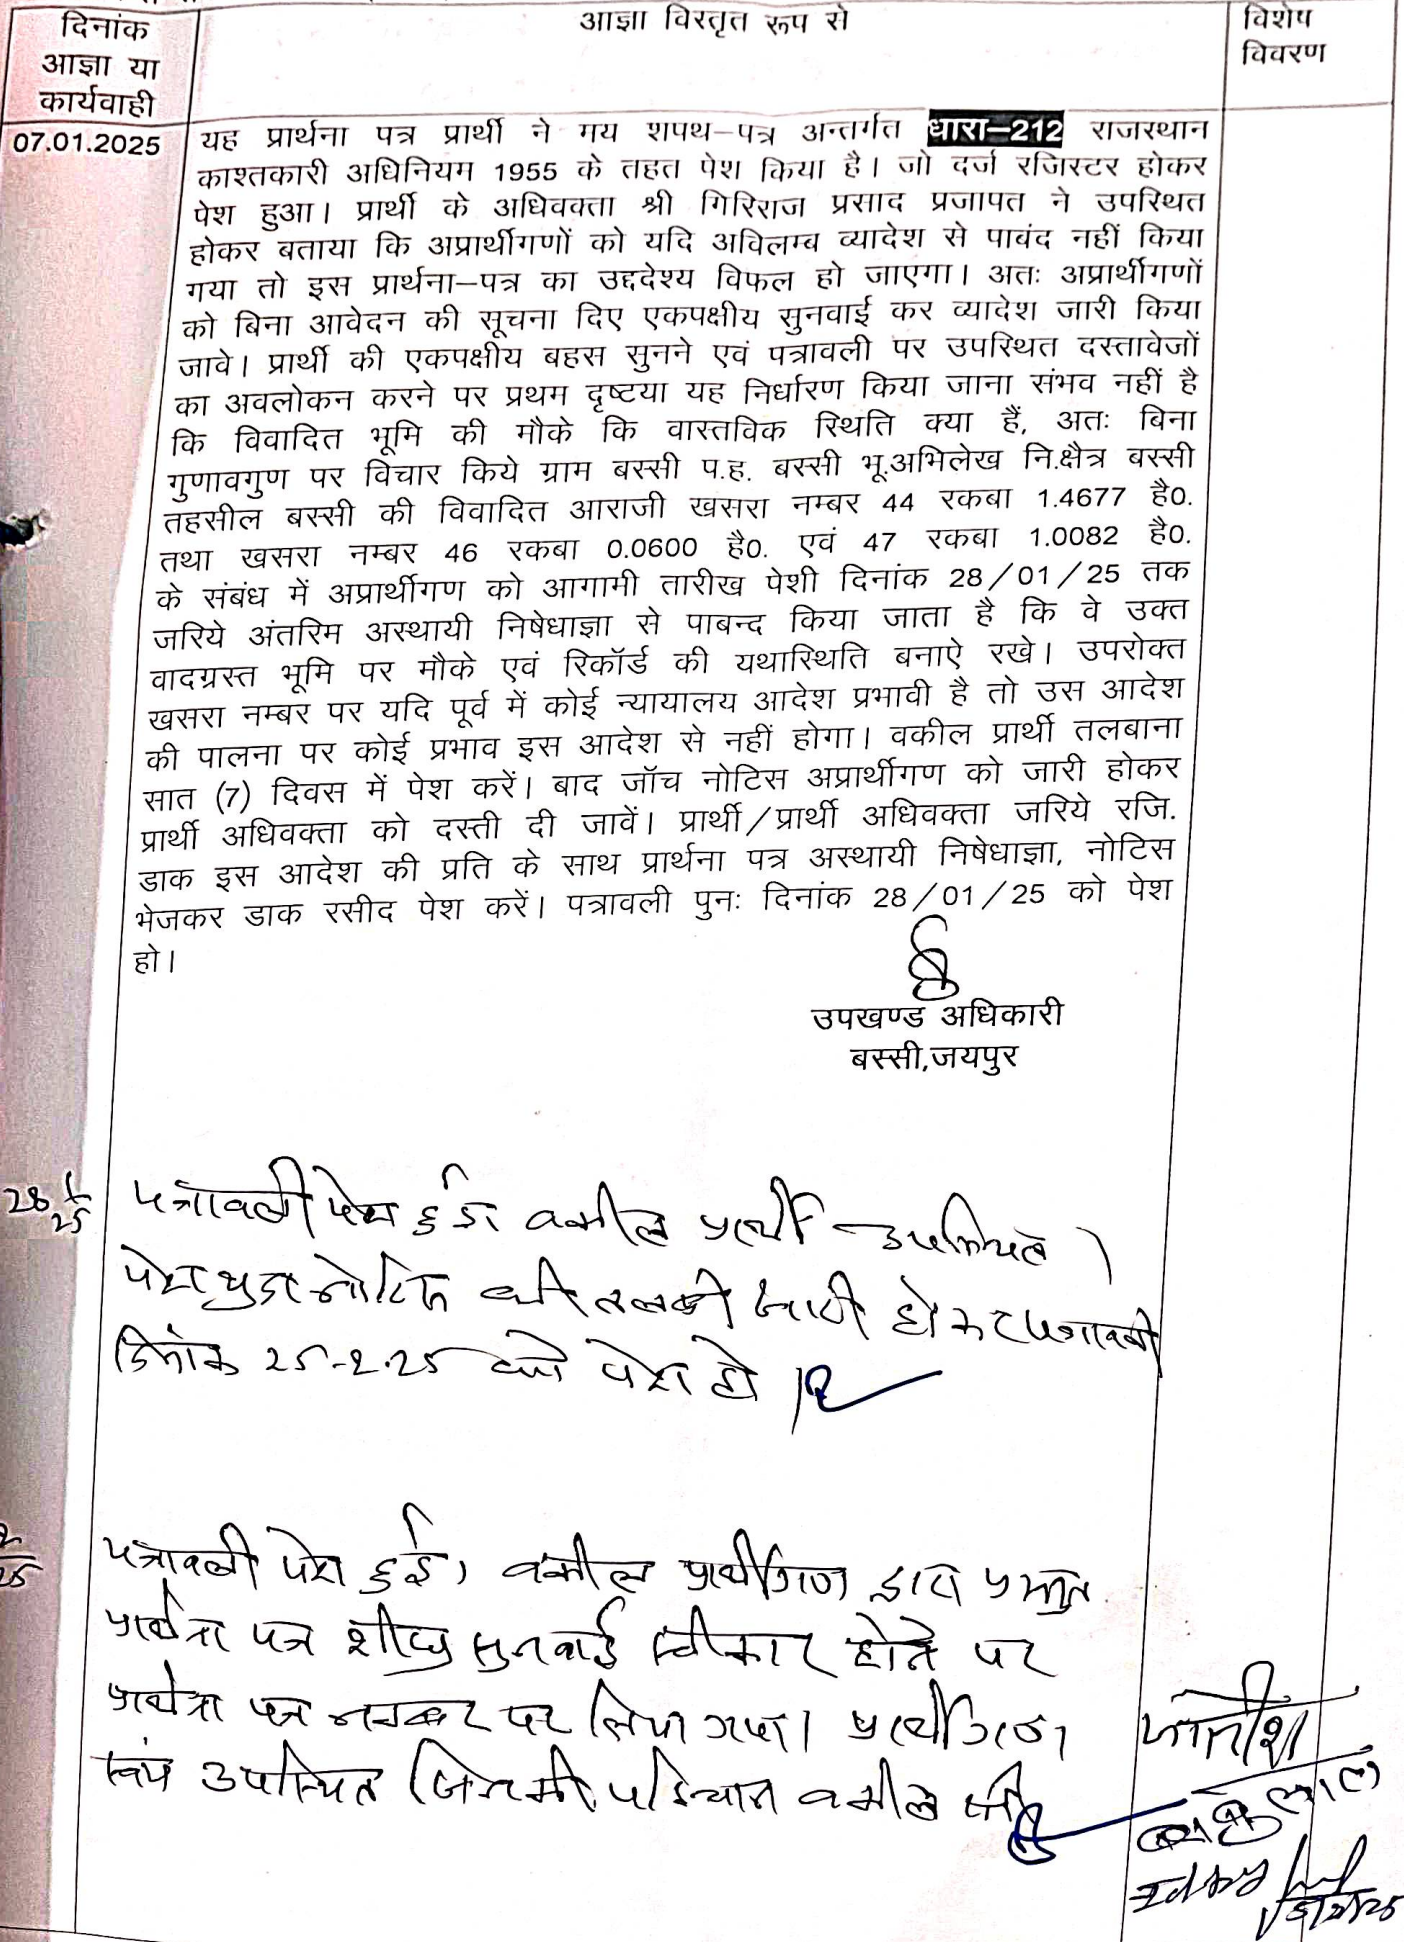 दिनांक
आज्ञा या
कार्यवाही
आज्ञा विस्तृत रूप से
विशेष
विवरण
07.01.2025
यह प्रार्थना पत्र प्रार्थी ने मय शपथ–पत्र अन्तर्गत धारा–212 राजस्थान
काश्तकारी अधिनियम 1955 के तहत पेश किया है। जो दर्ज रजिस्टर होकर
पेश हुआ। प्रार्थी के अधिवक्ता श्री गिरिराज प्रसाद प्रजापत ने उपस्थित
होकर बताया कि अप्रार्थीगणों को यदि अविलम्ब व्यादेश से पाबंद नहीं किया
गया तो इस प्रार्थना–पत्र का उद्ददेश्य विफल हो जाएगा। अतः अप्रार्थीगणों
को बिना आवेदन की सूचना दिए एकपक्षीय सुनवाई कर व्यादेश जारी किया
जावे। प्रार्थी की एकपक्षीय बहस सुनने एवं पत्रावली पर उपस्थित दस्तावेजों
का अवलोकन करने पर प्रथम दृष्टया यह निर्धारण किया जाना संभव नहीं है
कि विवादित भूमि की मौके कि वास्तविक स्थिति क्या हैं, अतः बिना
गुणावगुण पर विचार किये ग्राम बस्सी प.ह. बस्सी भू.अभिलेख नि.क्षैत्र बस्सी
तहसील बस्सी की विवादित आराजी खसरा नम्बर 44 रकबा 1.4677 है0.
तथा खसरा नम्बर 46 रकबा 0.0600 है0. एवं 47 रकबा 1.0082 है0.
के संबंध में अप्रार्थीगण को आगामी तारीख पेशी दिनांक 28/01/25 तक
जरिये अंतरिम अस्थायी निषेधाज्ञा से पाबन्द किया जाता है कि वे उक्त
वादग्रस्त भूमि पर मौके एवं रिकॉर्ड की यथास्थिति बनाऐ रखे। उपरोक्त
खसरा नम्बर पर यदि पूर्व में कोई न्यायालय आदेश प्रभावी है तो उस आदेश
की पालना पर कोई प्रभाव इस आदेश से नहीं होगा। वकील प्रार्थी तलबाना
सात (7) दिवस में पेश करें। बाद जॉच नोटिस अप्रार्थीगण को जारी होकर
प्रार्थी अधिवक्ता को दस्ती दी जावें। प्रार्थी/प्रार्थी अधिवक्ता जरिये रजि.
डाक इस आदेश की प्रति के साथ प्रार्थना पत्र अस्थायी निषेधाज्ञा, नोटिस
भेजकर डाक रसीद पेश करें। पत्रावली पुनः दिनांक 28/01/25 को पेश
हो।
उपखण्ड अधिकारी
बस्सी,जयपुर
28/1/25 पत्रावली पेश हुई। वकील प्रार्थी उपस्थित।
पेश शुदा नोटिस की तलबी जारी होकर पत्रावली
दिनांक 25-2-25 को पेश हो।
पत्रावली पेश हुई, वकील प्रार्थीगण द्वारा प्रस्तुत
प्रार्थना पत्र शीघ्र सुनवाई स्वीकार होने पर
प्रार्थना पत्र नम्बर पर लिया गया। प्रार्थीगण
स्वयं उपस्थित जिनकी पहिचान वकील श्री